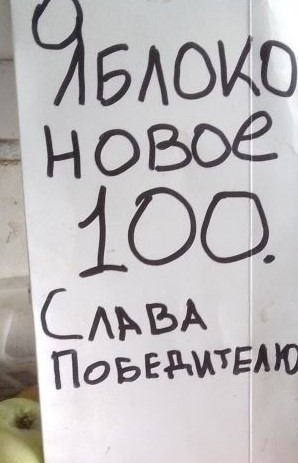 Яблоко
новое
100.
Слава
Победителю